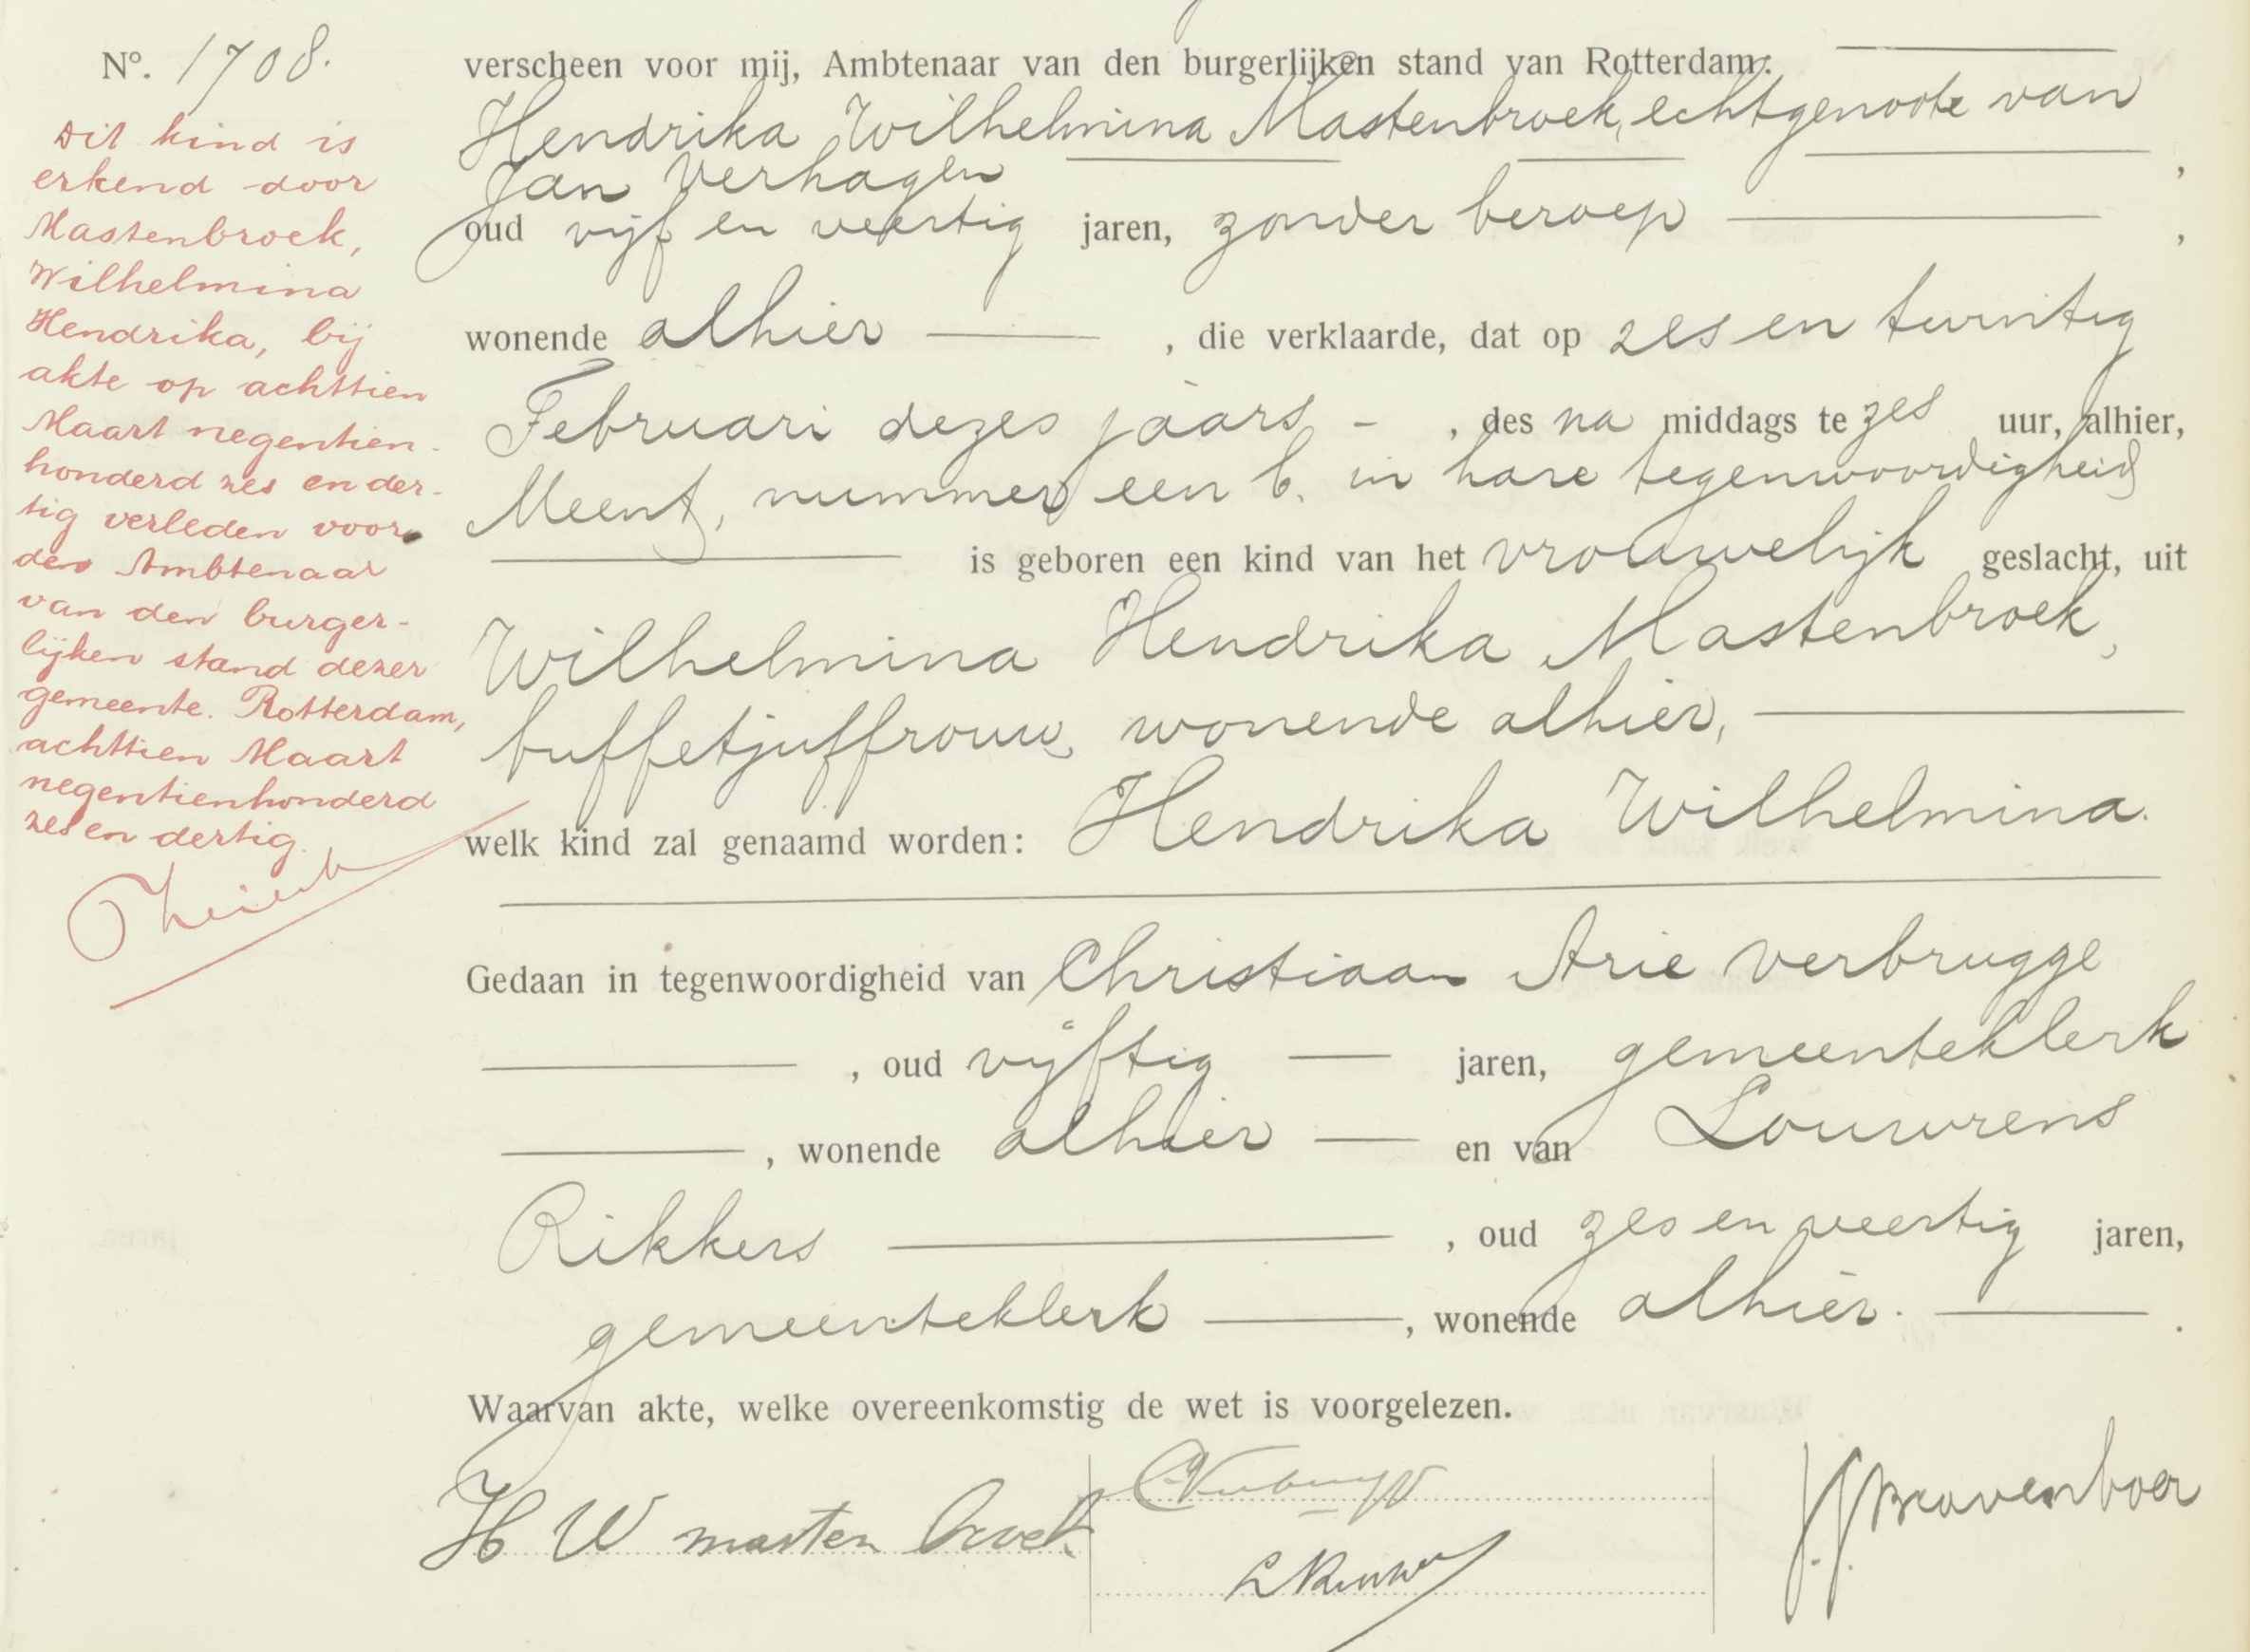 Nº. 1708.
Dit kind is
erkend door
Mastenbroek,
Wilhelmina
Hendrika, bij
akte op achttien
Maart negentien-
honderd zes en der-
tig verleden voor
den Ambtenaar
van den burger-
lijken stand dezer
gemeente. Rotterdam,
achttien Maart
negentienhonderd
zes en dertig.
verscheen voor mij, Ambtenaar van den burgerlijken stand van Rotterdam:
Hendrika Wilhelmina Mastenbroek, echtgenoote van
Jan Verhagen ,
oud vijf en veertig jaren, zonder beroep ,
wonende alhier , die verklaarde, dat op zes en twintig
Februari dezes jaars - , des na middags te zes uur, alhier,
Meent, nummer een b. in hare tegenwoordigheid
is geboren een kind van het vrouwelijk geslacht, uit
Wilhelmina Hendrika Mastenbroek,
buffetjuffrouw, wonende alhier,
welk kind zal genaamd worden: Hendrika Wilhelmina.
Gedaan in tegenwoordigheid van Christiaan Arie Verbrugge
, oud vijftig jaren, gemeenteklerk
, wonende alhier en van Louwrens
Rikkers , oud zes en veertig jaren,
gemeenteklerk , wonende alhier. .
Waarvan akte, welke overeenkomstig de wet is voorgelezen.
H W mastenbroek
J.J. Bravenboer